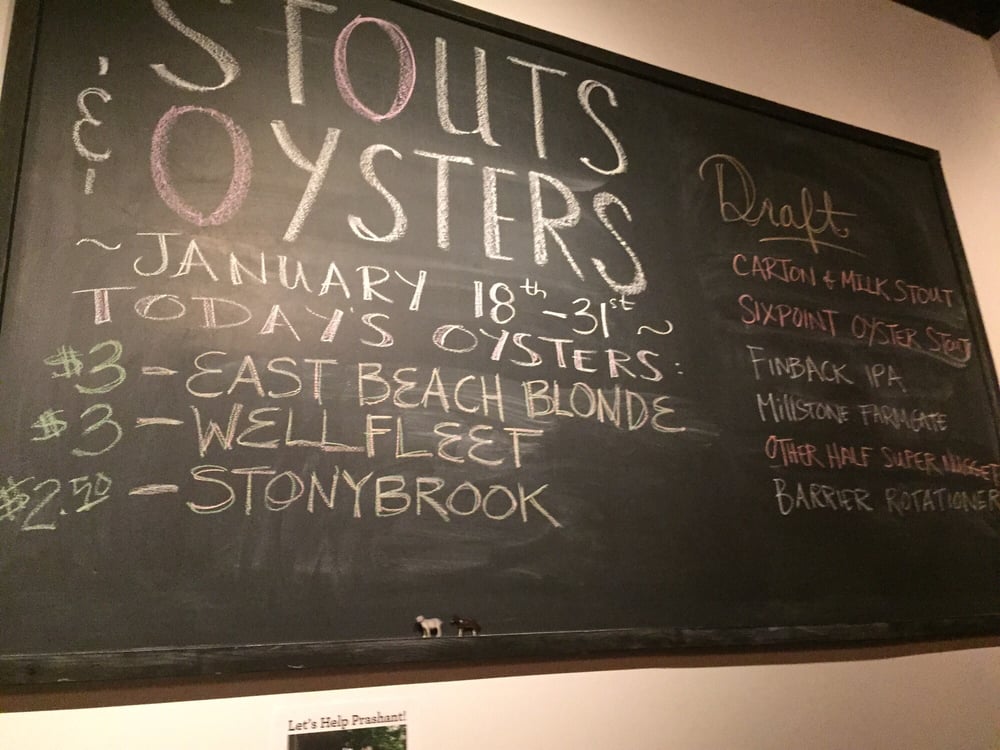 STOUTS
&
OYSTERS
~ JANUARY 18th - 31st ~
TODAY'S OYSTERS:
$3 - EAST BEACH BLONDE
$3 - WELLFLEET
$2.50 - STONYBROOK
Draft
CARTON & MILK STOUT
SIXPOINT OYSTER STOUT
FINBACK IPA
MILLSTONE FARMGATE
OTHER HALF SUPER NUGGET
BARRIER ROTATIONER
Let's Help Prashant!